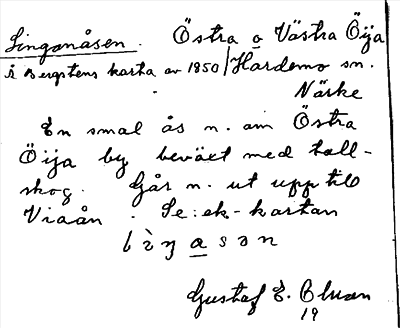 Lingonåsen. Östra o Västra Öija
Å Bergstens karta av 1850 / Hardemo sn.
Närke
En smal ås n. om Östra
Öija by beväxt med tall-
skog. Går n. ut upp till
Viaån. Se: ek-kartan
Gustaf E.
19